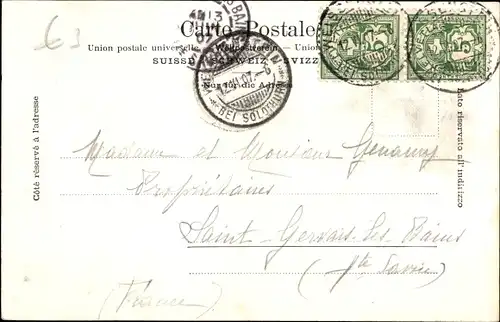 63
Carte Postale
Union postale universelle. — Weltpostverein. —
SUISSE SCHWEIZ SVIZZ
Nur für die Adresse
BEI SOLOTHURN
Côté réservé à l'adresse
Lato riservato all'indirizzo
Madame et Monsieur
Propriétaires
Saint-Gervais-les-Bains
(Hte Savoie)
(France)